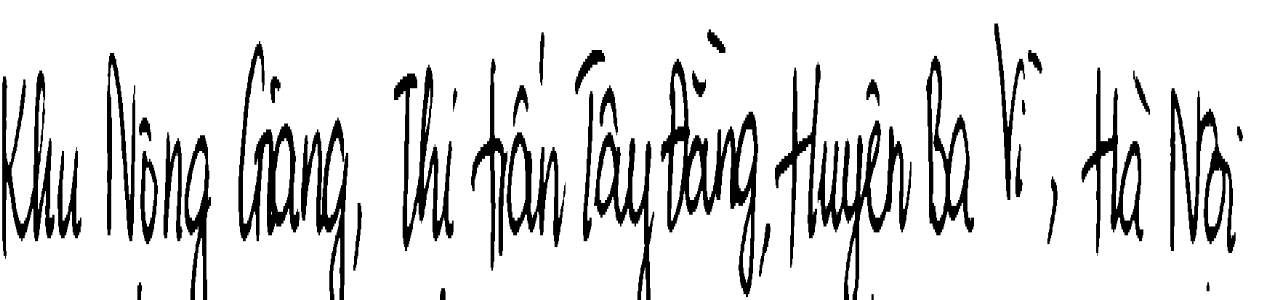 Khu Nông Giang, Thị trấn Tây Đằng, Huyện Ba Vì, Hà Nội